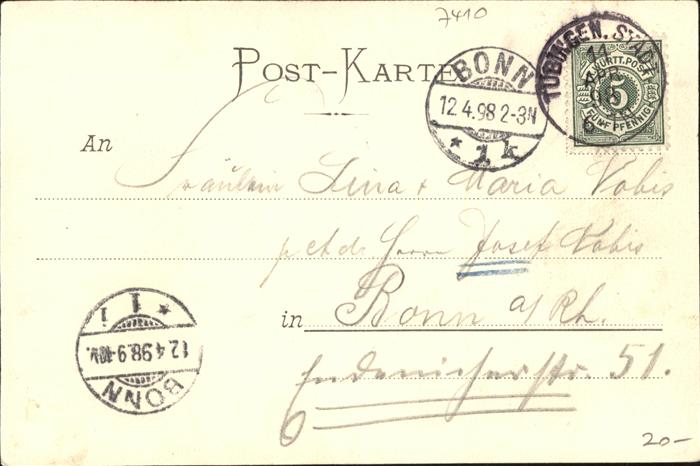 7410
POST-KARTE
BONN
12.4.98 2-3N
* 1 k
TÜBINGEN. STADT
11
APR
98
6
WÜRTT. POST
5
FÜNF PFENNIG
An
Fräulein Lina & Maria Vobis
p. Herrn Josef Vobis
in Bonn a/Rh.
Endenicherstr. 51.
BONN
12.4.98.9-10V.
* 1 i
20-